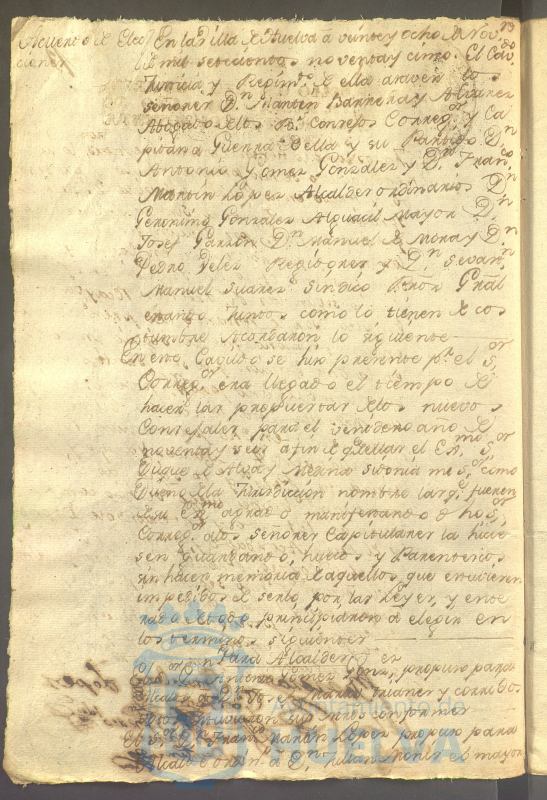 23
Acuerdo de Elec
ciones
En la Villa de Huelva a veinte y ocho de Nov.
de mil setecientos noventa y cinco. El Cav.do
Justicia y Regim.to de ella a saver los
señores D.n Martin Barrera y Alvarez
Abogado de los R.s Consejos Correg.or y Ca
pitan a Guerra de ella y su Partido D.n
Antonio Gomez Gonzalez y D.n Fran.co
Martin Lopez Alcaldes ordinarios D.n
Geronimo Gonzalez Alguacil Mayor D.n
Josef Garzon D.n Manuel de Mora y D.n
Pedro Velez Regidores y D.n
Manuel Suarez Sindico Pror Gral
estando juntos como lo tienen de cos
tumbre Acordaron lo siguiente
En este Cavildo se hizo presente p.r el S.or
Correg.or era llegado el tiempo de
hacer las propuestas de los nuevos
Consiales para el venidero año de
noventa y seis a fin de q.e de ellas el Ex.mo S.or
Duque de Alva y Medina Sidonia mi S.or como
Dueño de la Jurisdiccion nombre las q.e fueren
de su agrado manifestando dho S.or
Correg.or a los señores Capitulares la hicie
sen guardando, huecos y Parentescos
sin hacer memoria de aquellos que estuvieren
impedidos de serlo por las Leyes, y ente
rados de todo, principiaron a elegir en
los terminos siguientes
Para Alcaldes
D.n Antonio Gomez Gonz.z propuso para
Alcalde
conformes
El S.or D.n Fran.co Martin Lopez propuso para
Alcalde ordin.o a D.n Julian el mayor
Ayuntamiento de
HUELVA